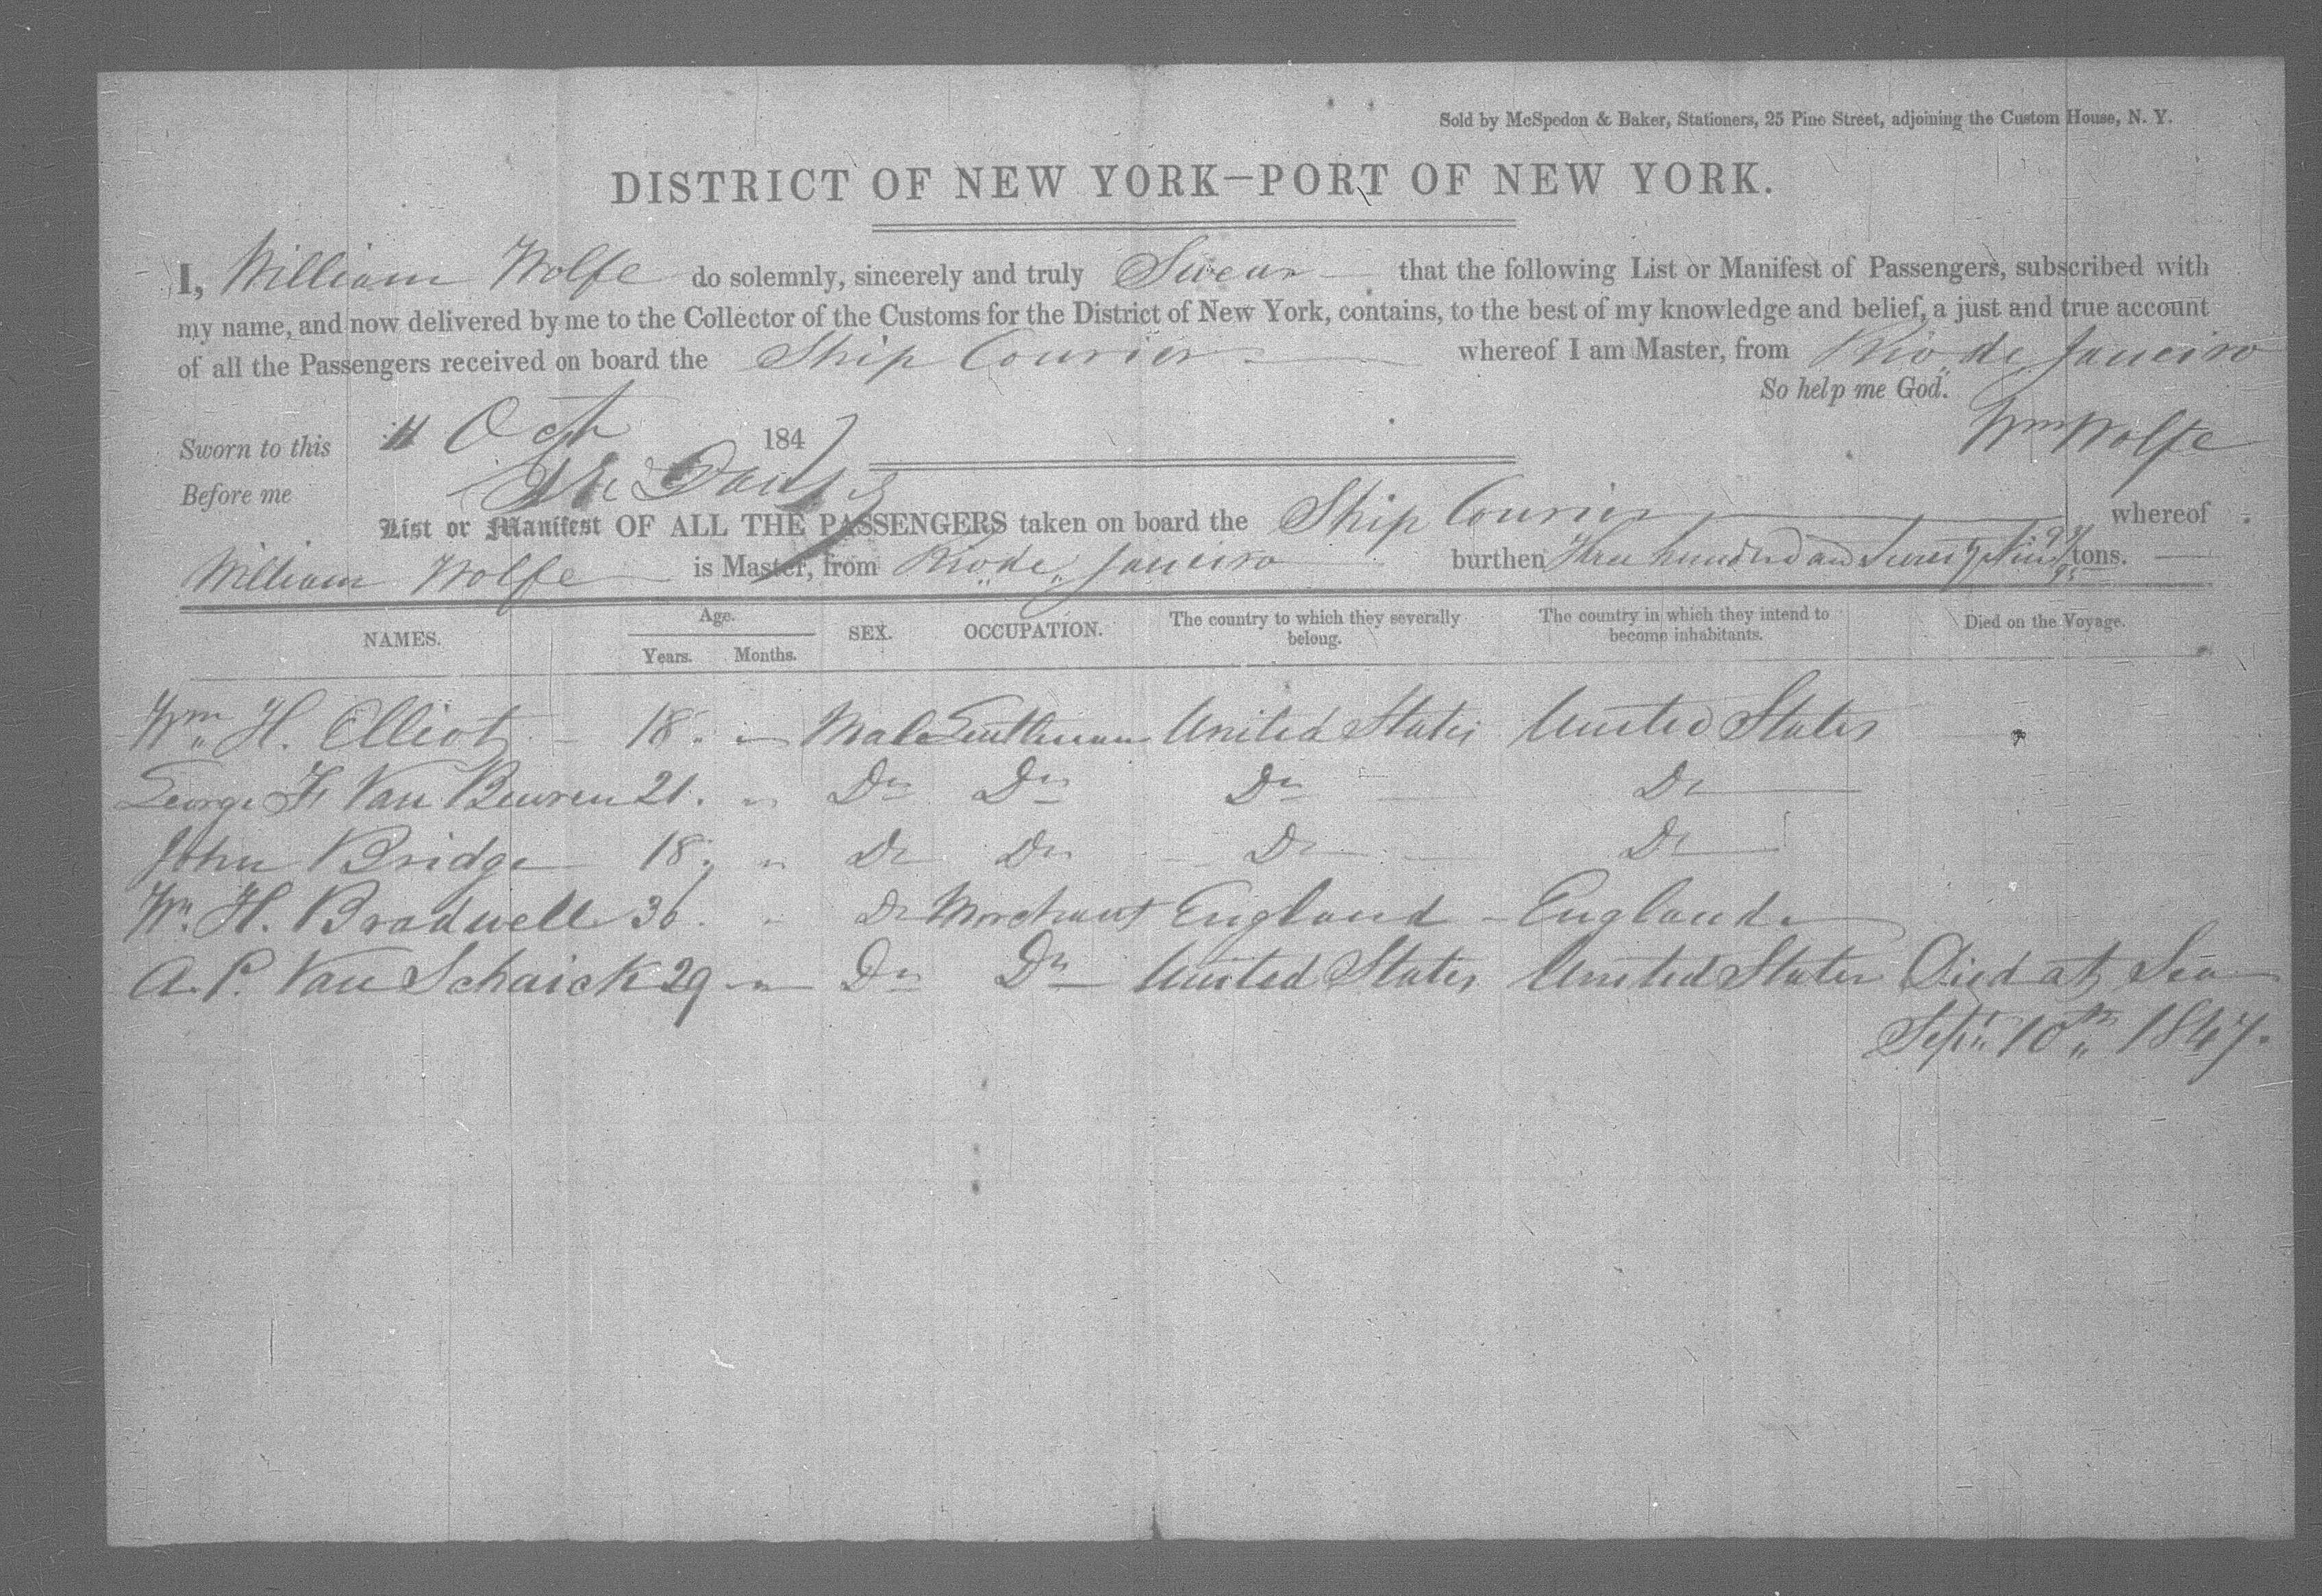 Sold by McSpedon & Baker, Stationers, 25 Pine Street, adjoining the Custom House, N. Y.
DISTRICT OF NEW YORK—PORT OF NEW YORK.
I, William Wolfe do solemnly, sincerely and truly Swear that the following List or Manifest of Passengers, subscribed with
my name, and now delivered by me to the Collector of the Customs for the District of New York, contains, to the best of my knowledge and belief, a just and true account
of all the Passengers received on board the Ship Courier whereof I am Master, from Rio de Janeiro
So help me God.
Wm Wolfe
Sworn to this 11 Oct 1847
Before me
List or Manifest OF ALL THE PASSENGERS taken on board the Ship Courier whereof
William Wolfe is Master, from Rio de Janeiro burthen Three hundred and tons.
NAMES. Age. Years. Months. SEX. OCCUPATION. The country to which they severally belong. The country in which they intend to become inhabitants. Died on the Voyage.
Wm H. Elliot 18 " Male Gentleman United States United States
George F Van Beuren 21. " Do Do Do Do
John Bridge 18 " Do Do Do Do
Wm H. Bradwell 36. " Do Merchant England England
A. P. Van Schaick 29 " Do Do United States United States Died at Sea
Sept 10th 1847.